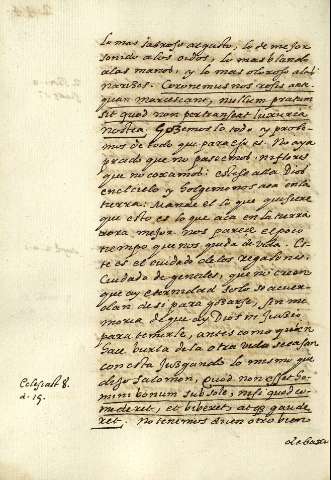 lo mas sabroso al gusto, lo de mejor
sonido a los oidos, lo mas blando
a las manos, y lo mas oloroso a las
narizes. Coronemus nos rosis ante
quam marcescant, nullum pratum
sit quod non pertranseat luxuria
nostra. Gozemos lo todo, y probe
mos de todo que para esso es. No aya
prado que no paseemos, ni flores
que no cojamos: estese alla Dios
en el cielo y holgemonos aca en la
tierra. Mande el lo que quisiere
que esto es lo que aca en la tierra
mejor nos parece el poco
tiempo que nos queda de vida. Es
te es el cuidado de los regalones.
Cuidado de gentiles, que ni creen
que ay eternidad solo se acuer
dan de si para gozarse, sin me
moria de que ay Dios ni juizio
para temerle, antes como quien
haze burla de la otra vida se casan
con esta juzgando lo mismo que
dijo Salomon, quod non esset ho
mini bonum sub sole, nisi quod co
mederet, et biberet, atq3 gaude
ret. No tenemos dicen otro bien
Eclesiast 8.
15.